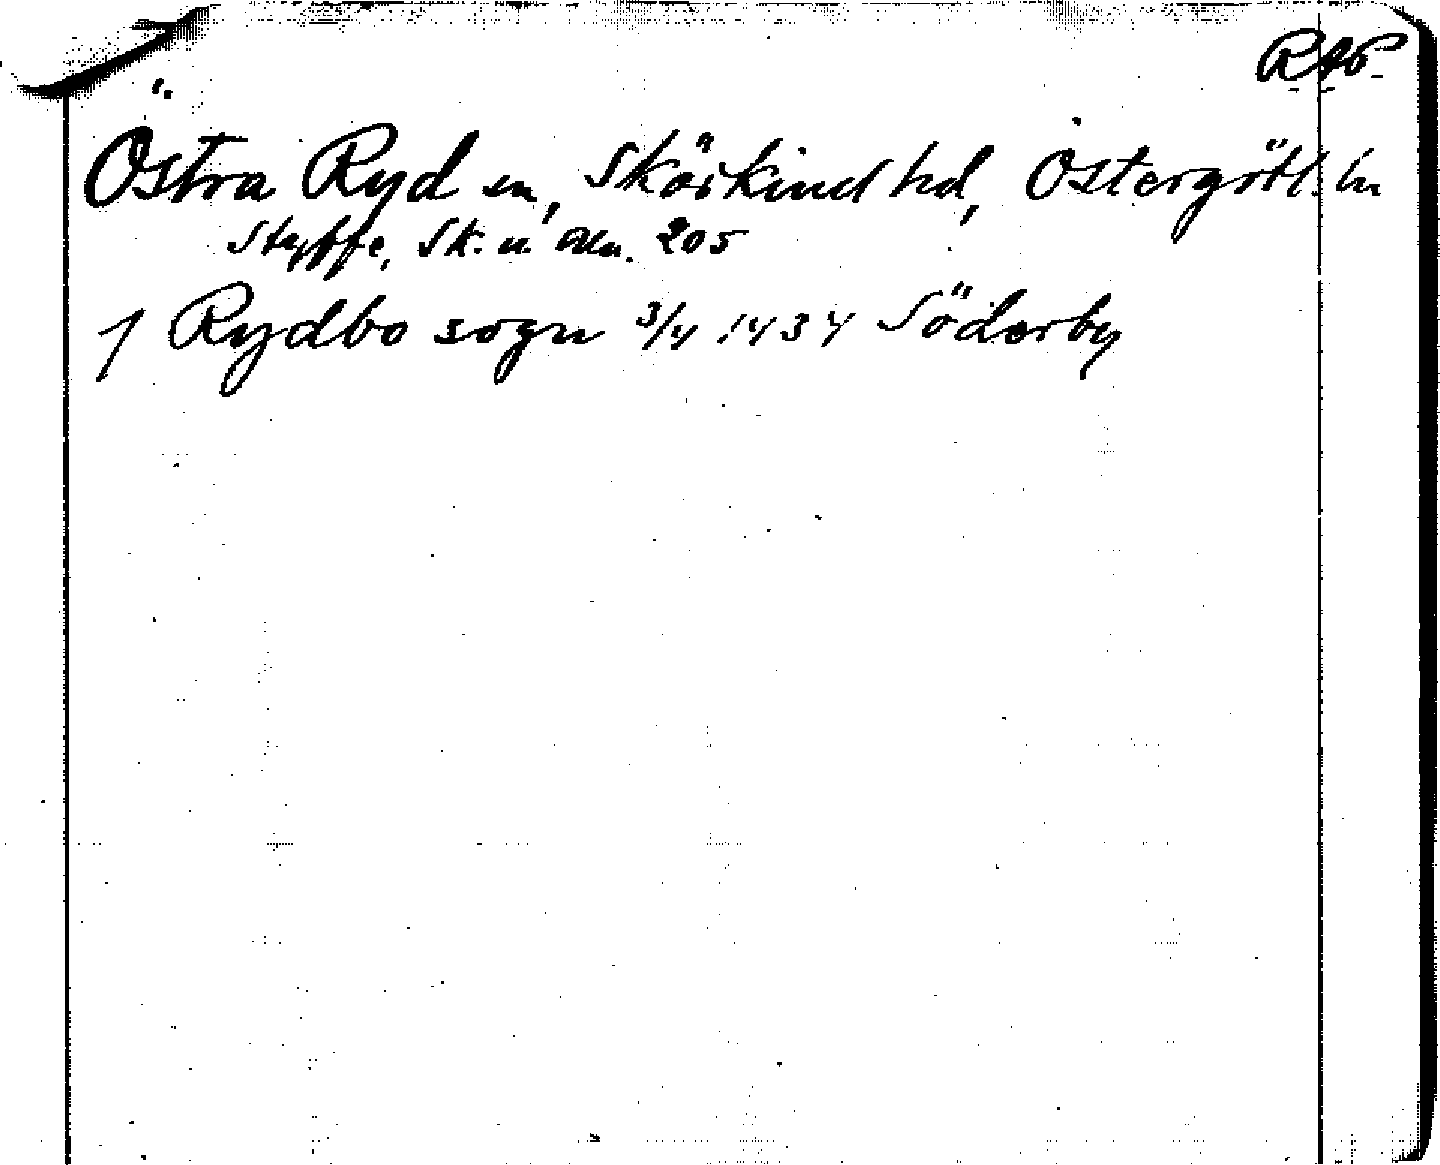 RAP.
Östra Ryd sn, Skärkind hd, Östergötl. ln
Styffe, Sk. u. Un. 205
J Rydbo sogn 3/4 1434 Söderby